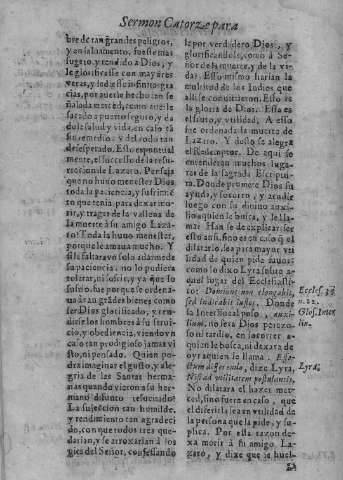 Sermon Catorze para
bre de tan grandes peligros,
y en salvamento, fuesse mas
sugeto, y rendido a Dios, y
le glorificasse con mayores
veras, y le diesse infinitas gra
cias, por averle hecho tan se
ñalada merced, como averle
sacado a puerto seguro, y da
dole salud y vida, en caso tã
sin remedio: y del todo tan
desesperado. Esto espiritual
mente, es el sucesso de la resu-
rreccion de Lazaro. Pensays
que no huuo menester Dios
toda la paciencia, y sufrimiẽ
to que tenia, para dexar mo-
rir, y tragar de la vallena de
la muerte à su amigo Laza-
ro? Toda la huuo menester,
porque le amaua mucho. Y
si le faltara vn solo adarme de
su paciencia, no lo pudiera
tolerar, ni sufrir, y ya que lo
sufrio, fue porque se ordena-
ua a tan grãdes bienes como
ser Dios glorificado, y ren-
dirse los hombres à su serui-
cio, y obediencia, viendo vn
caso tan prodigioso jamas vi
sto, ni pensado. Quien po-
dra imaginar el gusto, y ale-
gria de las Santas herma-
nas quando vieron a su her-
mano difunto resucitado?
La sujeccion tan humilde,
y rendimiento tan agradeci
do, con que todos tres que-
darian, y se arrojarian à los
pies del Señor, confessando
le por verdadero Dios, y
glorificandole, como à Se-
ñor de la muerte, y de la vi-
da. Esso mismo harian la
multitud de los Iudios que
alli se conuirtieron. Esso es
la gloria de Dios. Esta es
el fruto, y vtilidad, A esso
fue ordenada la muerte de
Lazaro. Y desto se alegra
el Redemptor. De aqui se
entenderan muchos luga-
res de la sagrada Escriptu-
ra. Donde promete Dios su
ayuda, y socorro, y acudir
luego con su diuino auxi-
lio, a quien le busca, y le lla-
ma. Han se de explicar ser
esto assi, sino es en caso q̃ el
dilatarlo, sea para mayor vti
lidad de quien pide fauor:
como lo dixo Lyra sobre a-
quel lugar del Ecclesiasti-
co: Dominus non elongabit,
sed iudicabit iustos. Donde
la Interlineal poso, auxi-
lium, no sera Dios perezo-
so ni tardio, en socorrer a
quien le busca, ni dexara de
oyr a quien le llama.
differendo, dize Lyra,
Nisi ad vtilitatem postulantis.
No dilatara el hazer mer-
ced, sino fuere en caso, que
el diferirla sea en vtilidad de
la persona que la pide, y su-
plica. Por esta razon de-
xa morir à su amigo. La-
zaro, y dize que se huel-
Eccles. 35
n. 22.
Glos. Inter
lin.
Lyra,